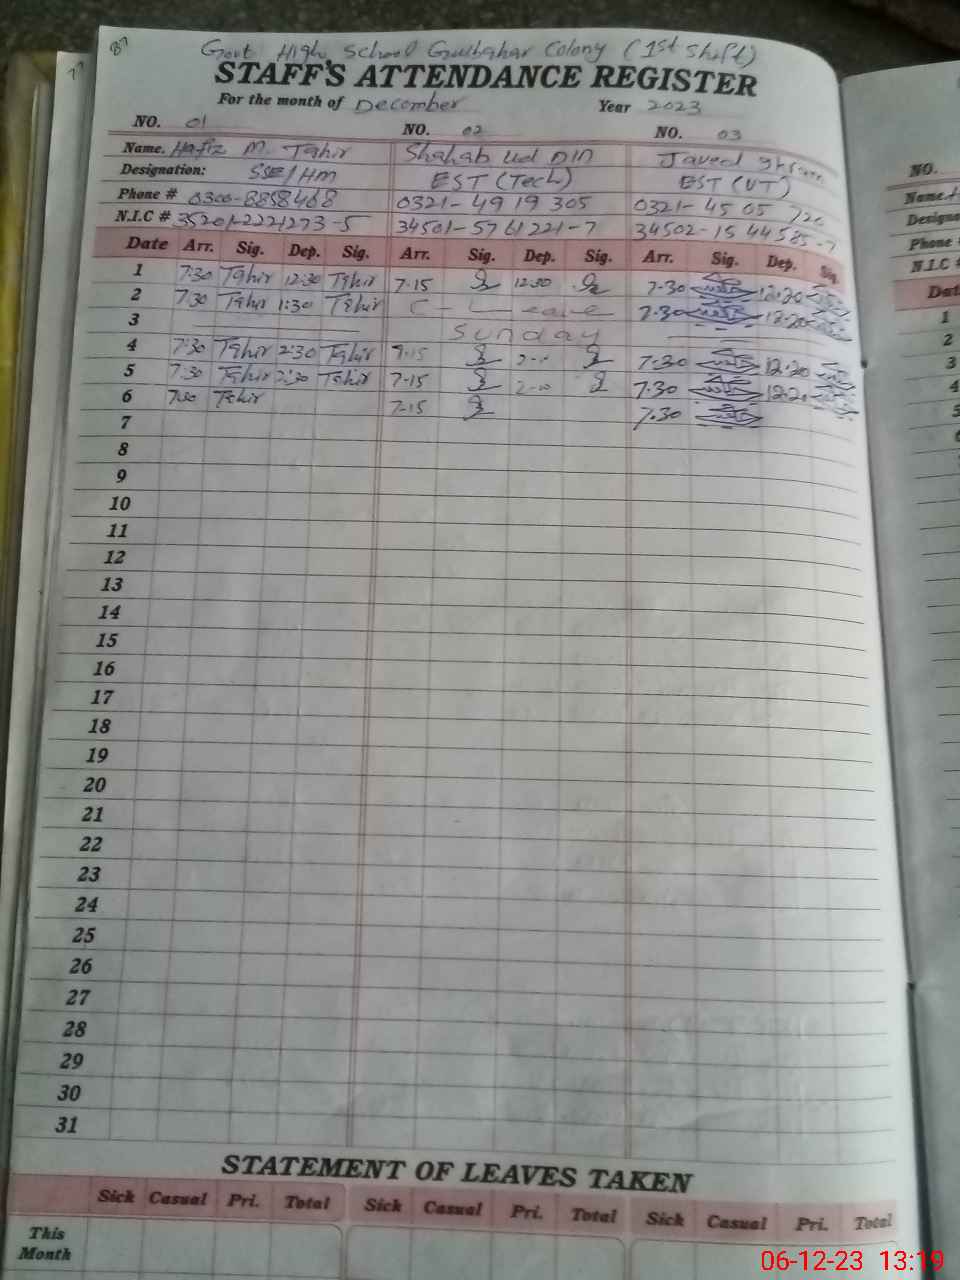 87
77
Govt High School Gulbahar Colony (1st Shift)
STAFF'S ATTENDANCE REGISTER
For the month of December Year 2023
NO. 01 NO. 02 NO. 03
Name. Hafiz M. Tahir Shahab ud Din Javed
Designation: SSE/HM EST (Tech) EST (VT)
Phone # 0300-8858468 0321-4919305 0321-4505720
N.I.C # 35201-2221273-5 34501-5761221-7 34502-1544585-7
Date Arr. Sig. Dep. Sig. Arr. Sig. Dep. Sig. Arr. Sig. Dep. Sig.
1 7:30 Tahir 12:30 Tahir 7-15 12-30 7-30 12:20
2 7:30 Tahir 1:30 Tahir C-Leave 7.30 12:20
3 Sunday
4 7:30 Tahir 2:30 Tahir 7-15 2-0 7-30 12:20
5 7:30 Tahir 2:30 Tahir 7-15 2-00 7.30 12:20
6 7:30 Tahir 7-15 7.30
7
8
9
10
11
12
13
14
15
16
17
18
19
20
21
22
23
24
25
26
27
28
29
30
31
STATEMENT OF LEAVES TAKEN
Sick Casual Pri. Total Sick Casual Pri. Total Sick Casual Pri. Total
This
Month
NO.
Name.
Designa
Phone
N.I.C #
Dat
1
2
3
4
5
06-12-23 13:19